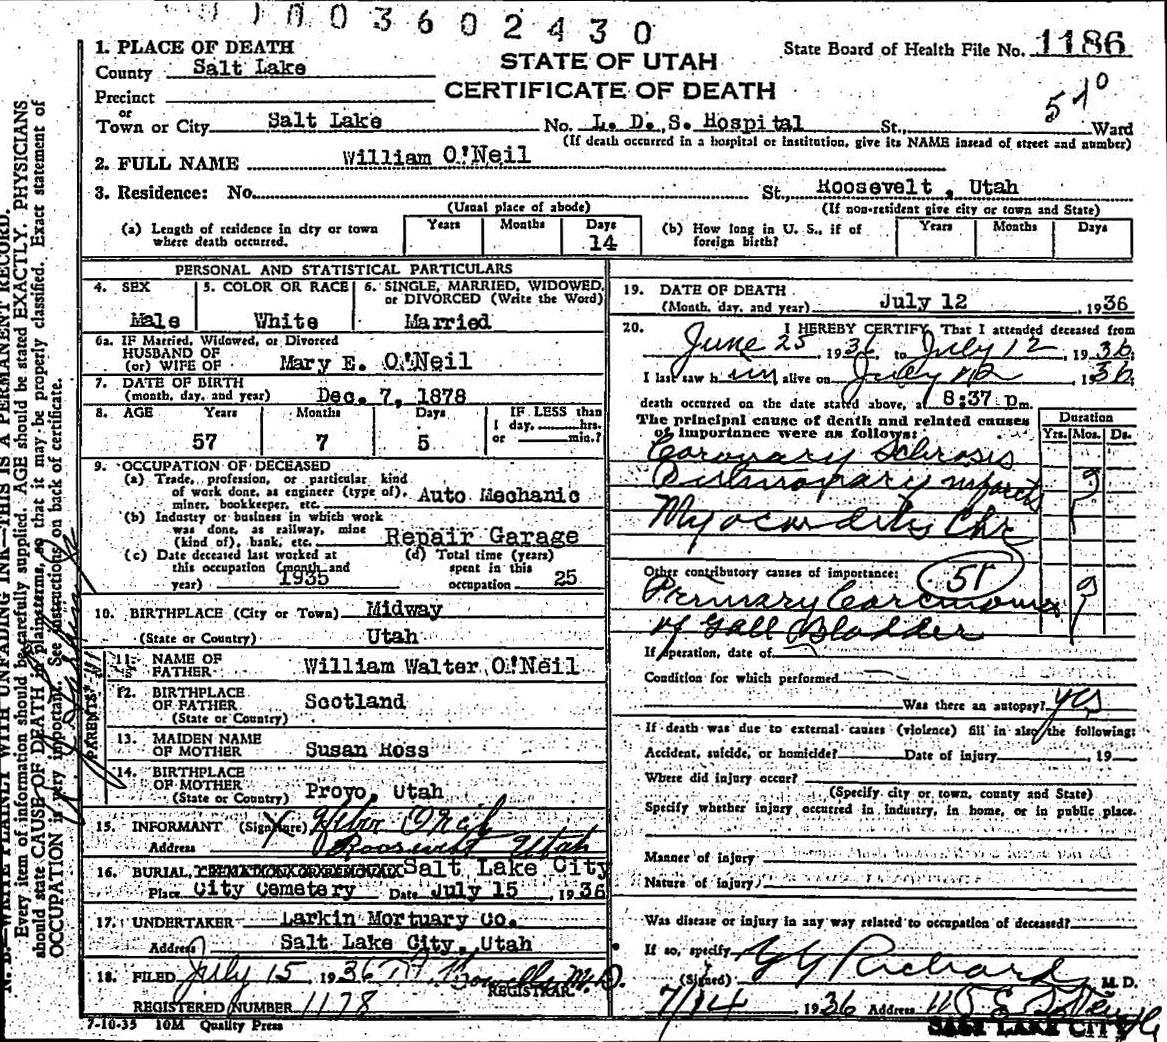 1003602430
STATE OF UTAH
CERTIFICATE OF DEATH
State Board of Health File No. 1186
1. PLACE OF DEATH
County Salt Lake
Precinct
or
Town or City Salt Lake No. L. D. S. Hospital St., Ward
(If death occurred in a hospital or institution, give its NAME instead of street and number)
2. FULL NAME William O'Neil
3. Residence: No. St., Roosevelt, Utah
(Usual place of abode) (If non-resident give city or town and State)
(a) Length of residence in city or town where death occurred. Years Months Days 14
(b) How long in U. S., if of foreign birth? Years Months Days
PERSONAL AND STATISTICAL PARTICULARS
4. SEX Male
5. COLOR OR RACE White
6. SINGLE, MARRIED, WIDOWED, or DIVORCED (Write the Word) Married
6a. IF Married, Widowed, or Divorced
HUSBAND OF
(or) WIFE OF Mary E. O'Neil
7. DATE OF BIRTH
(month, day, and year) Dec. 7, 1878
8. AGE Years 57 Months 7 Days 5 IF LESS than 1 day, hrs. or min.?
9. OCCUPATION OF DECEASED
(a) Trade, profession, or particular kind of work done, as engineer (type of), miner, bookkeeper, etc. Auto Mechanic
(b) Industry or business in which work was done, as railway, mine (kind of), bank, etc. Repair Garage
(c) Date deceased last worked at this occupation (month and year) 1935
(d) Total time (years) spent in this occupation 25
10. BIRTHPLACE (City or Town) Midway
(State or Country) Utah
PARENTS
11. NAME OF FATHER William Walter O'Neil
12. BIRTHPLACE OF FATHER (State or Country) Scotland
13. MAIDEN NAME OF MOTHER Susan Ross
14. BIRTHPLACE OF MOTHER (State or Country) Provo, Utah
15. INFORMANT (Signature)
Address Roosevelt Utah
16. BURIAL, Salt Lake City
Place City Cemetery Date July 15, 1936
17. UNDERTAKER Larkin Mortuary Co.
Address Salt Lake City, Utah
18. FILED July 15, 1936 M.D.
REGISTRAR.
REGISTERED NUMBER 1178
7-10-35 10M Quality Press
19. DATE OF DEATH
(Month, day, and year) July 12 1936
20. I HEREBY CERTIFY, That I attended deceased from
June 25, 1936 to July 12, 1936
I last saw him alive on July 12, 1936
death occurred on the date stated above, at 8:37 pm.
The principal cause of death and related causes of importance were as follows: Duration
Yrs. Mos. Ds.
Coronary Sclrosis
Pulmonary infarcts 9
Myocarditis Chr
Other contributory causes of importance: 51
Primary Carcinoma 9
of Gall Bladder
If operation, date of
Condition for which performed
Was there an autopsy? yes
If death was due to external causes (violence) fill in also the following:
Accident, suicide, or homicide? Date of injury 19
Where did injury occur?
(Specify city or town, county and State)
Specify whether injury occurred in industry, in home, or in public place.
Manner of injury
Nature of injury
Was disease or injury in any way related to occupation of deceased?
If so, specify
(Signed) G G Richards M. D.
7/14 1936 Address
SALT LAKE CITY
N. B.—WRITE PLAINLY WITH UNFADING INK—THIS IS A PERMANENT RECORD.
Every item of information should be carefully supplied. AGE should be stated EXACTLY. PHYSICIANS
should state CAUSE OF DEATH in plain terms, so that it may be properly classified. Exact statement of
OCCUPATION is very important. See instructions on back of certificate.